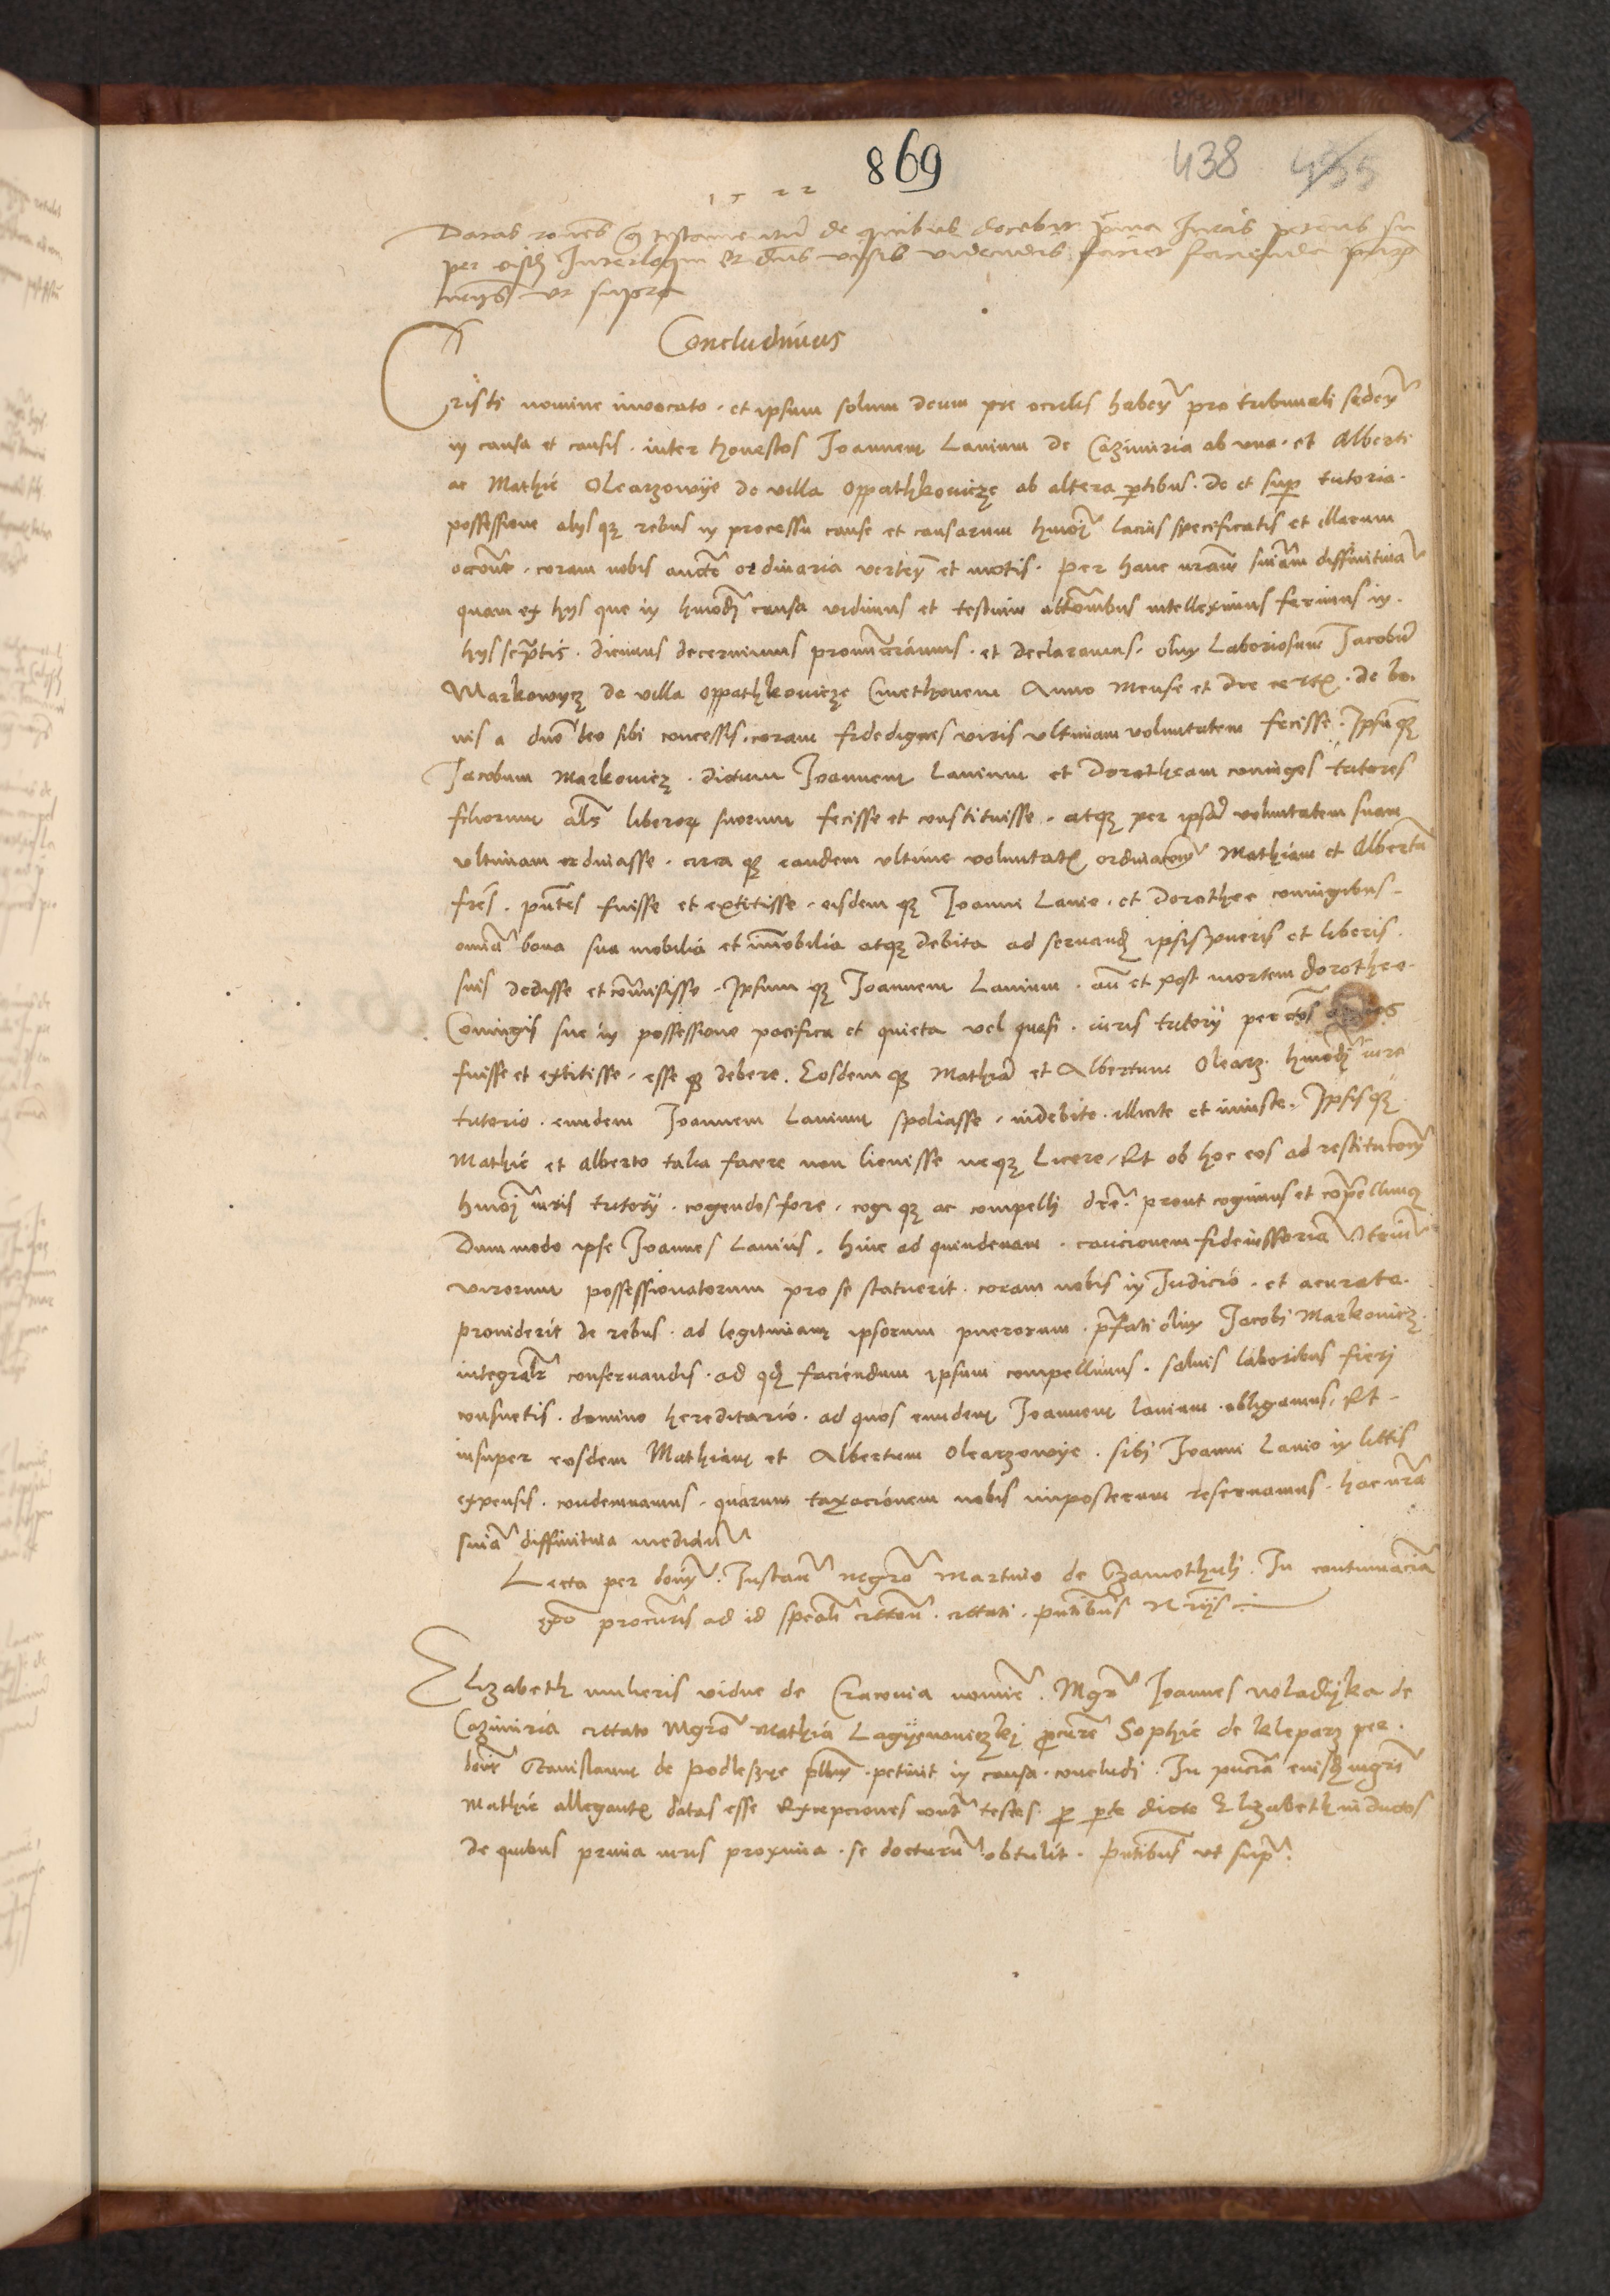 869 438 435
1522
Datas rones testamentū de quibus docebit pma Juris petens su
per eisdē Interloqui Et dnus visis videndis faciet facienda pntibus
ut supra
Concludimus
Cristi nomine invocato . et ipsum solum deum pre oculis habeñ pro tribunali sedeñ
in causa et causis . inter honestos Joannem Lanium de Cazimiria ab una . et Alberti
ac Mathie Olearzowije de villa Oppathkowicze ab altera ptibus . De et sup tutoria .
possessione alijsq rebus in processu cause et causarum hmoi lacius specificatis et illarum
occone . coram nobis aucte ordinaria verteñ et motis . Per hanc nram sniam diffinitiuā
quam ex hijs que in hmodi causa vidimus et testium attonibus intelleximus ferimus in .
hijs scptis . dicimus decernimus pronuncciamus . et declaramus . olim Laboriosum Jacobū
Markowycz de villa oppathkowicze Cmethonem Anno Mense et die certis . de bo.
nis a dno deo sibi concessis . coram fidedignis viris ultimam voluntatem fecisse . Ipsūq
Jacobum Markowicz . dictum Joannem Lanium et Dorotheam coniuges tutores
filiorum als liberoꝝ suorum fecisse et constituisse . atq per ipsā voluntatem suam
ultimam ordinasse . circa q eandem ultime voluntatis ordinacoñ Mathiam et Albertū
fres . pntes fuisse et extitisse . eisdem q Joanni Lanio . et Dorothee coniugibus .
omīa bona sua mobilia et imobilia atq debita ad servand ipsis pueris et liberis .
suis dedisse et comisisse . Ipsum q Joannem Lanium . an et post mortem dorothee .
Coniugis sue in possessione pacifica et quieta vel quasi . iuris tutorij per ctos annos
fuisse et extitisse . esse q debere . Eosdem q Mathiā et Albertum Olearz . hmodi iure
tutorio . eundem Joannem Lanium spoliasse . indebite . illicite et iniuste . Ipsisq
Mathie et Alberto talia facere non licuisse neq Licere , Et ob hoc eos ad restitutoñ
hmoi iuris tutorij . cogendos fore . cogi q ac compelli dre . prout cogimus et compellimq
Dummodo ipse Joannes Lanius . hinc ad quindenam . caucionem fideiussoriā
virorum possessionatorum pro se statuerit . coram nobis in Judicio . et acurate .
prouiderit de rebus . ad legitimam ipsorum puerorum . pfati olim Jacobi Markowicz .
integralr conseruandis . ad qd faciendum ipsum compellimus . saluis laboribus fieri
consuetis . domino hereditario . ad quos eundem Joannem lanium . obligamus , Et .
insuper eosdem Mathiam et Albertum Olearzowije . sibi Joanni Lanio in littis
expensis . condemnamus . quarum taxacionem nobis inposterum reseruamus . hac nra
snia diffinitiua mediañ
Lecta per doim . Instañ mgro Martino de Schamothuli . In contumaciā
procuris ad id speali cittoni . cittati . pntibus
Elizabeth mulieris vidue de Cracouia nomie . Mgr Joannes woladijka de
Cazimiria cittato Mgro Mathia Lagijewniczkj pcure Sophie de kleparz per .
doim Stanislaum de Podleszye petiuit in causa . concludi . In pncia eiusd mgri
Mathie allegantis datas esse Excepciones contr testes p pte dicte Elizabeth inductos
de quibus prima iuris proxima . se docturū obtulit . pntibus ut supra .